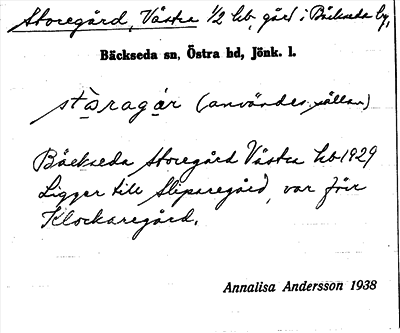 Storegård, Västra 1/2 hb, gård i Bäckseda by,
Bäckseda sn, Östra hd, Jönk. l.
stòragár (användes sällan)
Bäckseda Storegård Västra hb 1929
Ligger till Sliparegård, var förr
Klockaregård.
Annalisa Andersson 1938